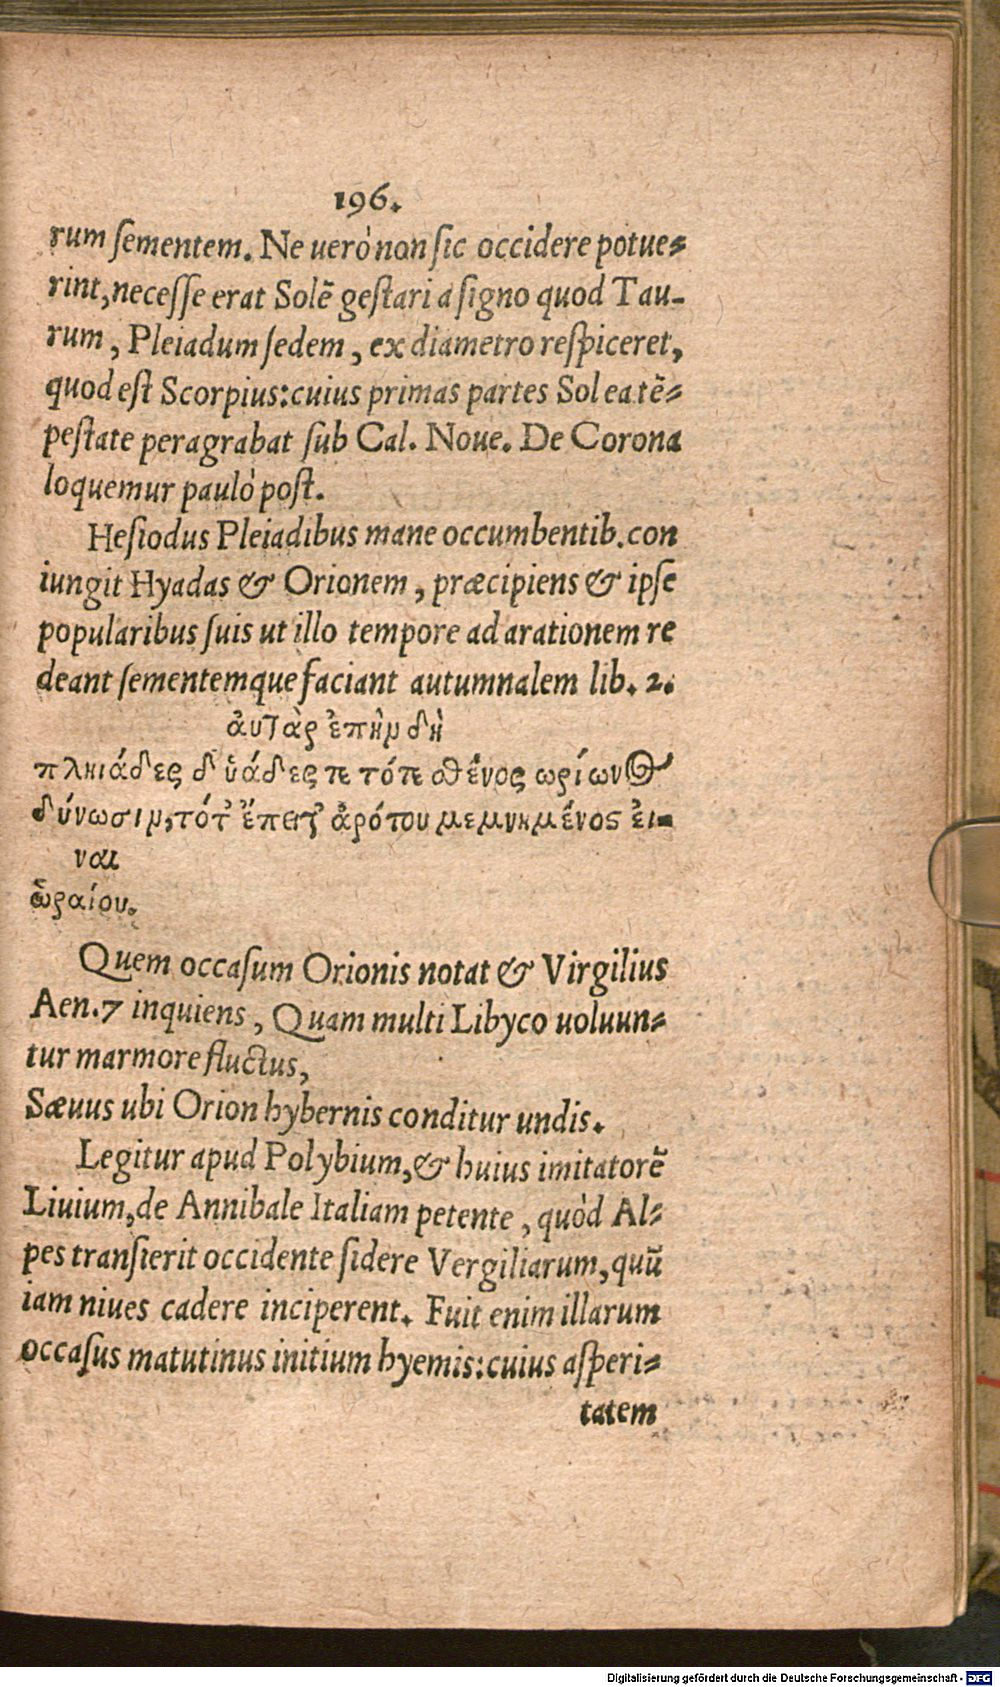 196.
rum sementem. Ne uerò non sic occidere potue-
rint, necesse erat Solē gestari a signo quod Tau-
rum, Pleiadum sedem, ex diametro respiceret,
quod est Scorpius: cuius primas partes Sol ea tē-
pestate peragrabat sub Cal. Noue. De Corona
loquemur paulò post.
Hesiodus Pleiadibus mane occumbentib. con
iungit Hyadas & Orionem, præcipiens & ipse
popularibus suis ut illo tempore ad arationem re
deant sementemque faciant autumnalem lib. 2.
ἀυτὰρ ἐπὴν δὴ
πληιάδες δ' ὑάδες τε τότε σθένος ὠρίωνος
δύνωσιν, τότ' ἔπειτ' ἀρότου μεμνημένος εἰ-
ναι
ὡραίου.
Quem occasum Orionis notat & Virgilius
Aen. 7 inquiens, Quam multi Libyco uoluun-
tur marmore fluctus,
Sæuus ubi Orion hybernis conditur undis.
Legitur apud Polybium, & huius imitatorē
Liuium, de Annibale Italiam petente, quòd Al-
pes transierit occidente sidere Vergiliarum, quū
iam niues cadere inciperent. Fuit enim illarum
occasus matutinus initium hyemis: cuius asperi-
tatem
Digitalisierung gefördert durch die Deutsche Forschungsgemeinschaft - DFG